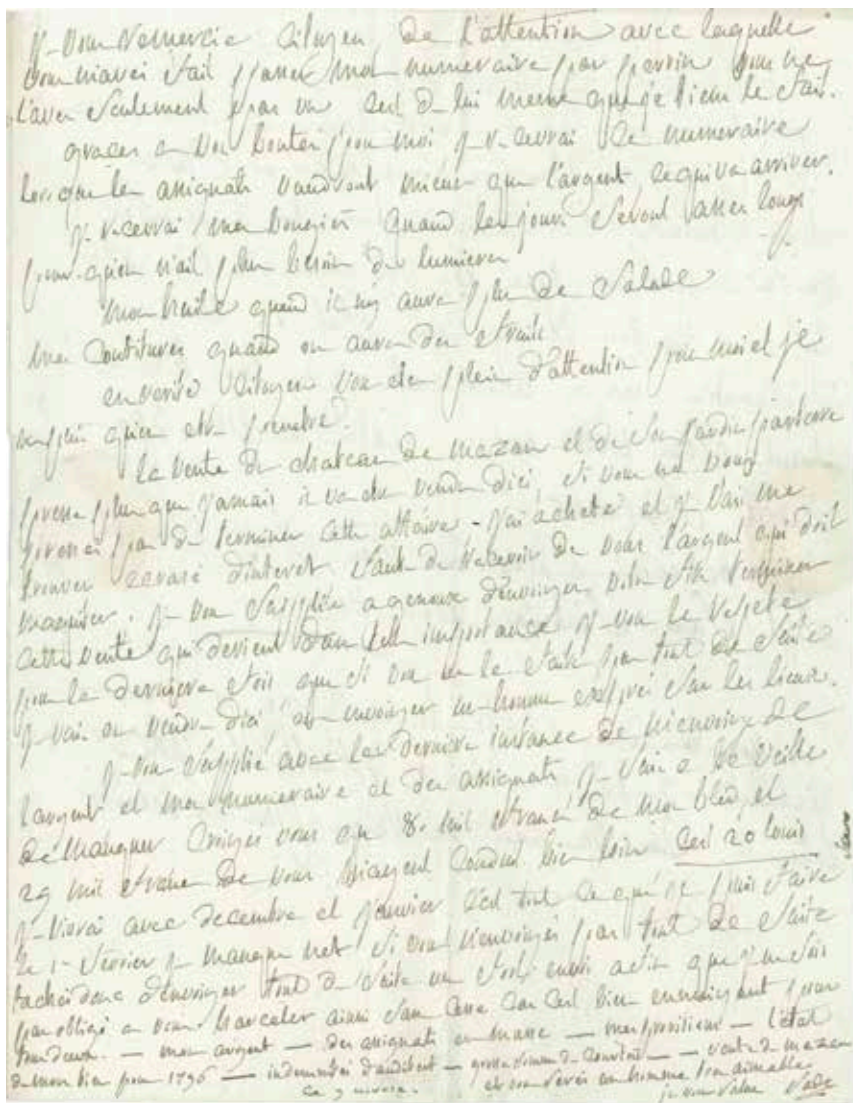 je vous remercie citoyen de l'attention avec laquelle
vous m'avez fait passer mon numeraire par perrin vous ne
l'avez seulement pas vu c'est de lui meme que je tiens le fait.
graces a vos bontes pour moi je recevrai le numeraire
lorsque les assignats vaudront mieux que l'argent ce qui va arriver.
je recevrai mes bougies quand les jours seront assez longs
pour qu'on n'ait plus besoin de lumieres
mon huile quand il n'y aura plus de salade
mes confitures quand on aura des fruits
en verité citoyen vous etes plein d'attention pour moi et je
la vente du chateau de mazan et de son jardin
presse plus que jamais il va etre vendu d'ici si vous ne vous
pressez pas de terminer cette affaire - j'ai acheté et je vais me
trouver ecrasé d'interet faute de recevoir de vous l'argent qui doit
m'acquiter. je vous supplie a genoux d'envoyer votre fils terminer
cette vente qui devient d'une telle importance je vous le repete
pour la derniere fois que si vous ne le faites pas tout de suite
je vais ou vendre d'ici ou envoyer un homme exprès sur les lieux.
je vous supplie avec la derniere instance de m'envoyer de
l'argent et mon numeraire et des assignats je suis a la veille
de manquer croyez vous que 8. mil francs de mon bled et
29 mil francs de vous m'ayent conduit bien loin c'est 20 louis
je vivrai avec decembre et janvier c'est tout ce que je puis faire
le 1er fevrier je manque net si vous n'envoyés pas tout de suite
tachés donc d'envoyer tout de suite un fort envoi afin que je ne sois
pas obligé a vous harceler ainsi sans cesse car c'est bien ennuyant pour
tous deux. — mon argent — des assignats en masse — mes provisions — l'état
de mon bien pour 1796 — indemnités d'audibert — — vente de mazan
ce 9 nivose. et vous serés un homme bien aimable
je vous salue Sade